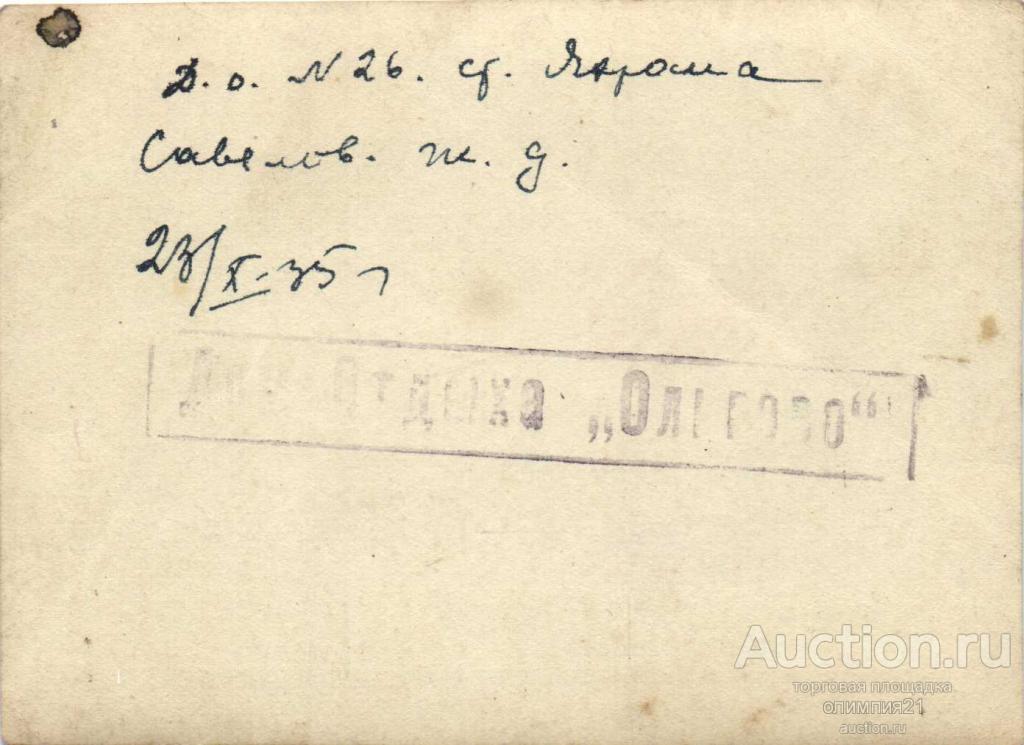 Д. о. N 26. ст. Яхрома
Савелов. ж. д.
23/X-35 г
Дом Отдыха „Ольгово“
Auction.ru
торговая площадка
олимпия21
auction.ru